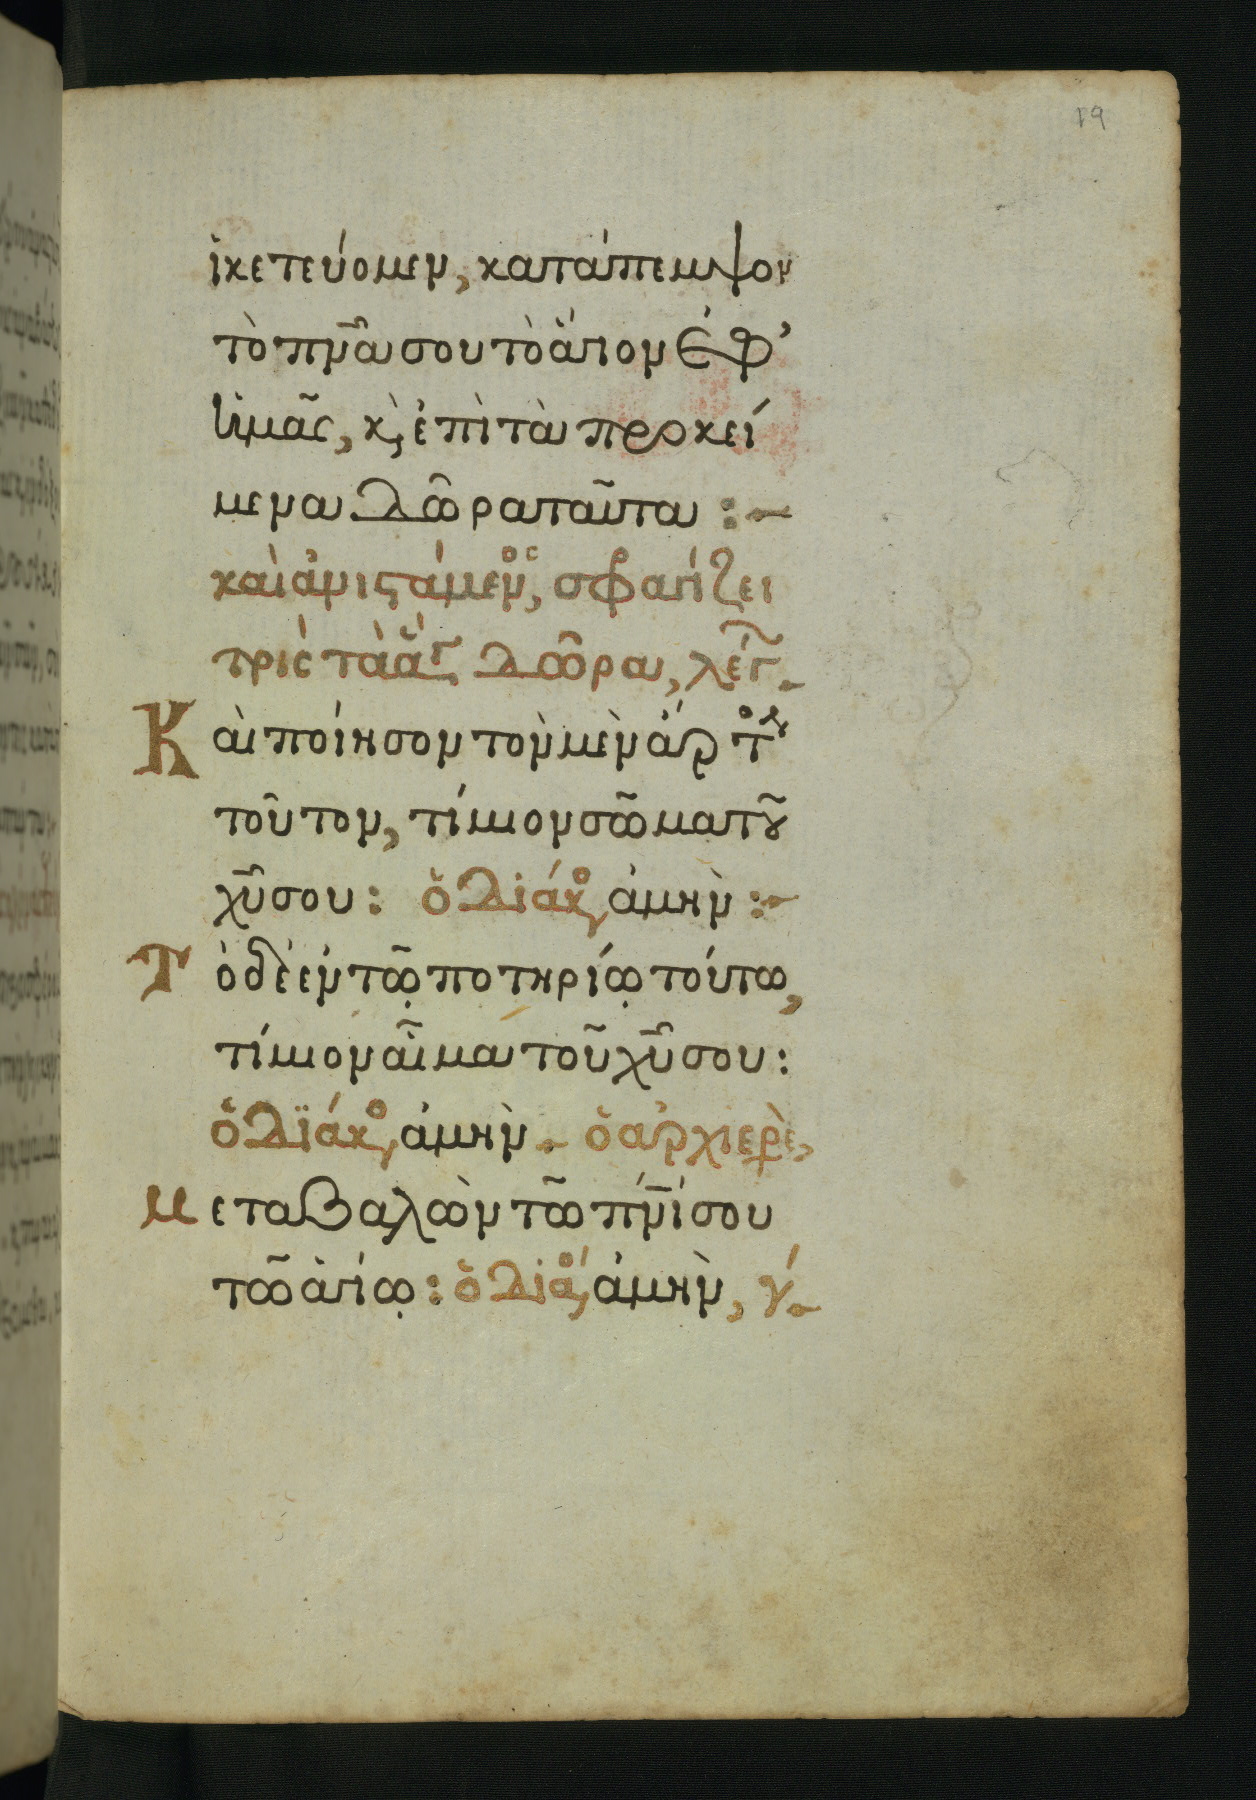 19
ἱκετεύομεν, κατάπεμψον
τὸ πν̅α σου τὸ ἅγιον ἐφ’
ἡμᾶς, κ̀, ἐπὶ τὰ προκεί
μενα δῶρα ταῦτα :~
καὶ ἀνιστάμενος, σφαγίζει
τρὶς τὰ ἅγ δῶρα, λέγ.
Καὶ ποίησον τὸν μὲν ἄρτον
τοῦτον, τίμιον σῶμα τοῦ
χ̅υ σου : ὁ διάκο, ἀμὴν :~
Τὸ δὲ ἐν τῷ ποτηρίῳ τούτω,
τίμιον αἷμα τοῦ χ̅υ σου :
ὁ διάκο, ἀμὴν . ὁ ἀρχιερὲ,
Μεταβαλὼν τῶ πν̅ί σου
τῶ ἁγίῳ : ὁ διά, ἀμὴν, γ´.